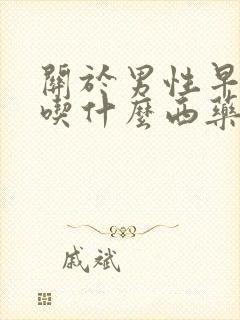 關於男性早
喫什麼西藥
戚斌